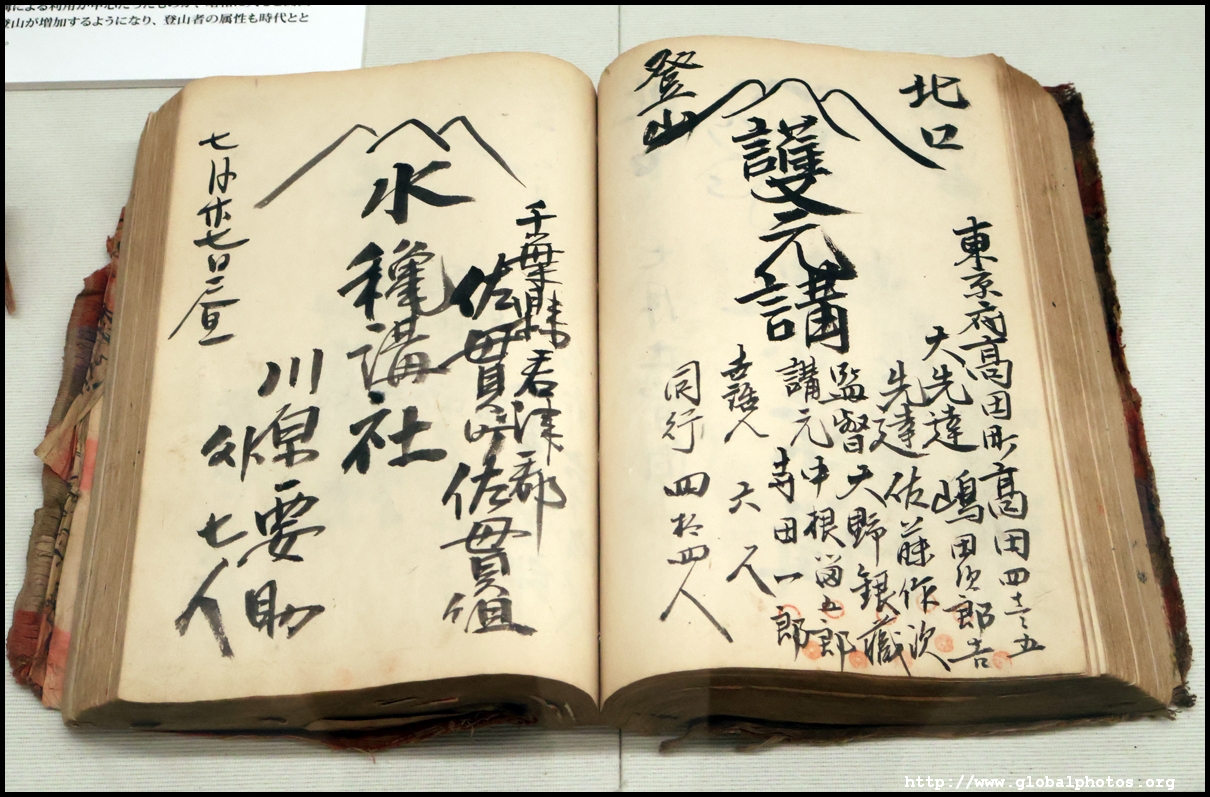 登山が増加するようになり、登山者の属性も時代とと
北口
東京府高田町高田四
大先達 嶋田次郎吉
先達 佐藤作次
監督 大野銀藏
講元 中根留五郎
寺田一郎
六人
同行 四拾四人
護元講
登山
千葉縣君津郡
佐貫町佐貫組
水 講社
川原要助
外七人
七月廿七日昼
http://www.globalphotos.org